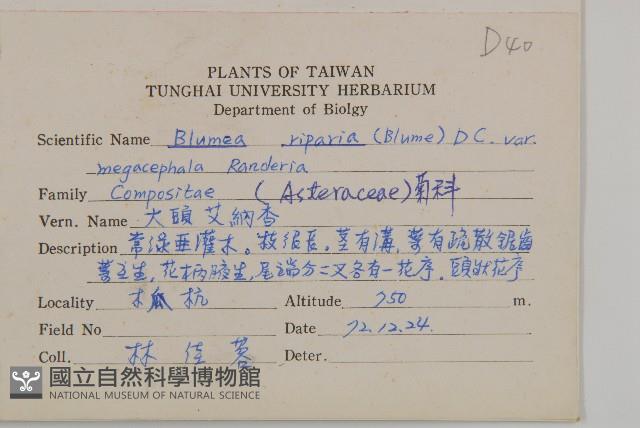 D40
PLANTS OF TAIWAN
TUNGHAI UNIVERSITY HERBARIUM
Department of Biolgy
Scientific Name Blumea riparia (Blume) DC. var.
megacephala Randeria
Family Compositae (Asteraceae) 菊科
Vern. Name 大頭艾納香
Description 常綠垂灌木。枝細長。莖有溝,葉有疏散鋸齒
葉互生,花柄腋生,尾端分二叉各有一花序。頭狀花序
Locality 木瓜杭 Altitude 750 m.
Field No Date 72.12.24.
Coll. 林佳蓉 Deter.
國立自然科學博物館
NATIONAL MUSEUM OF NATURAL SCIENCE